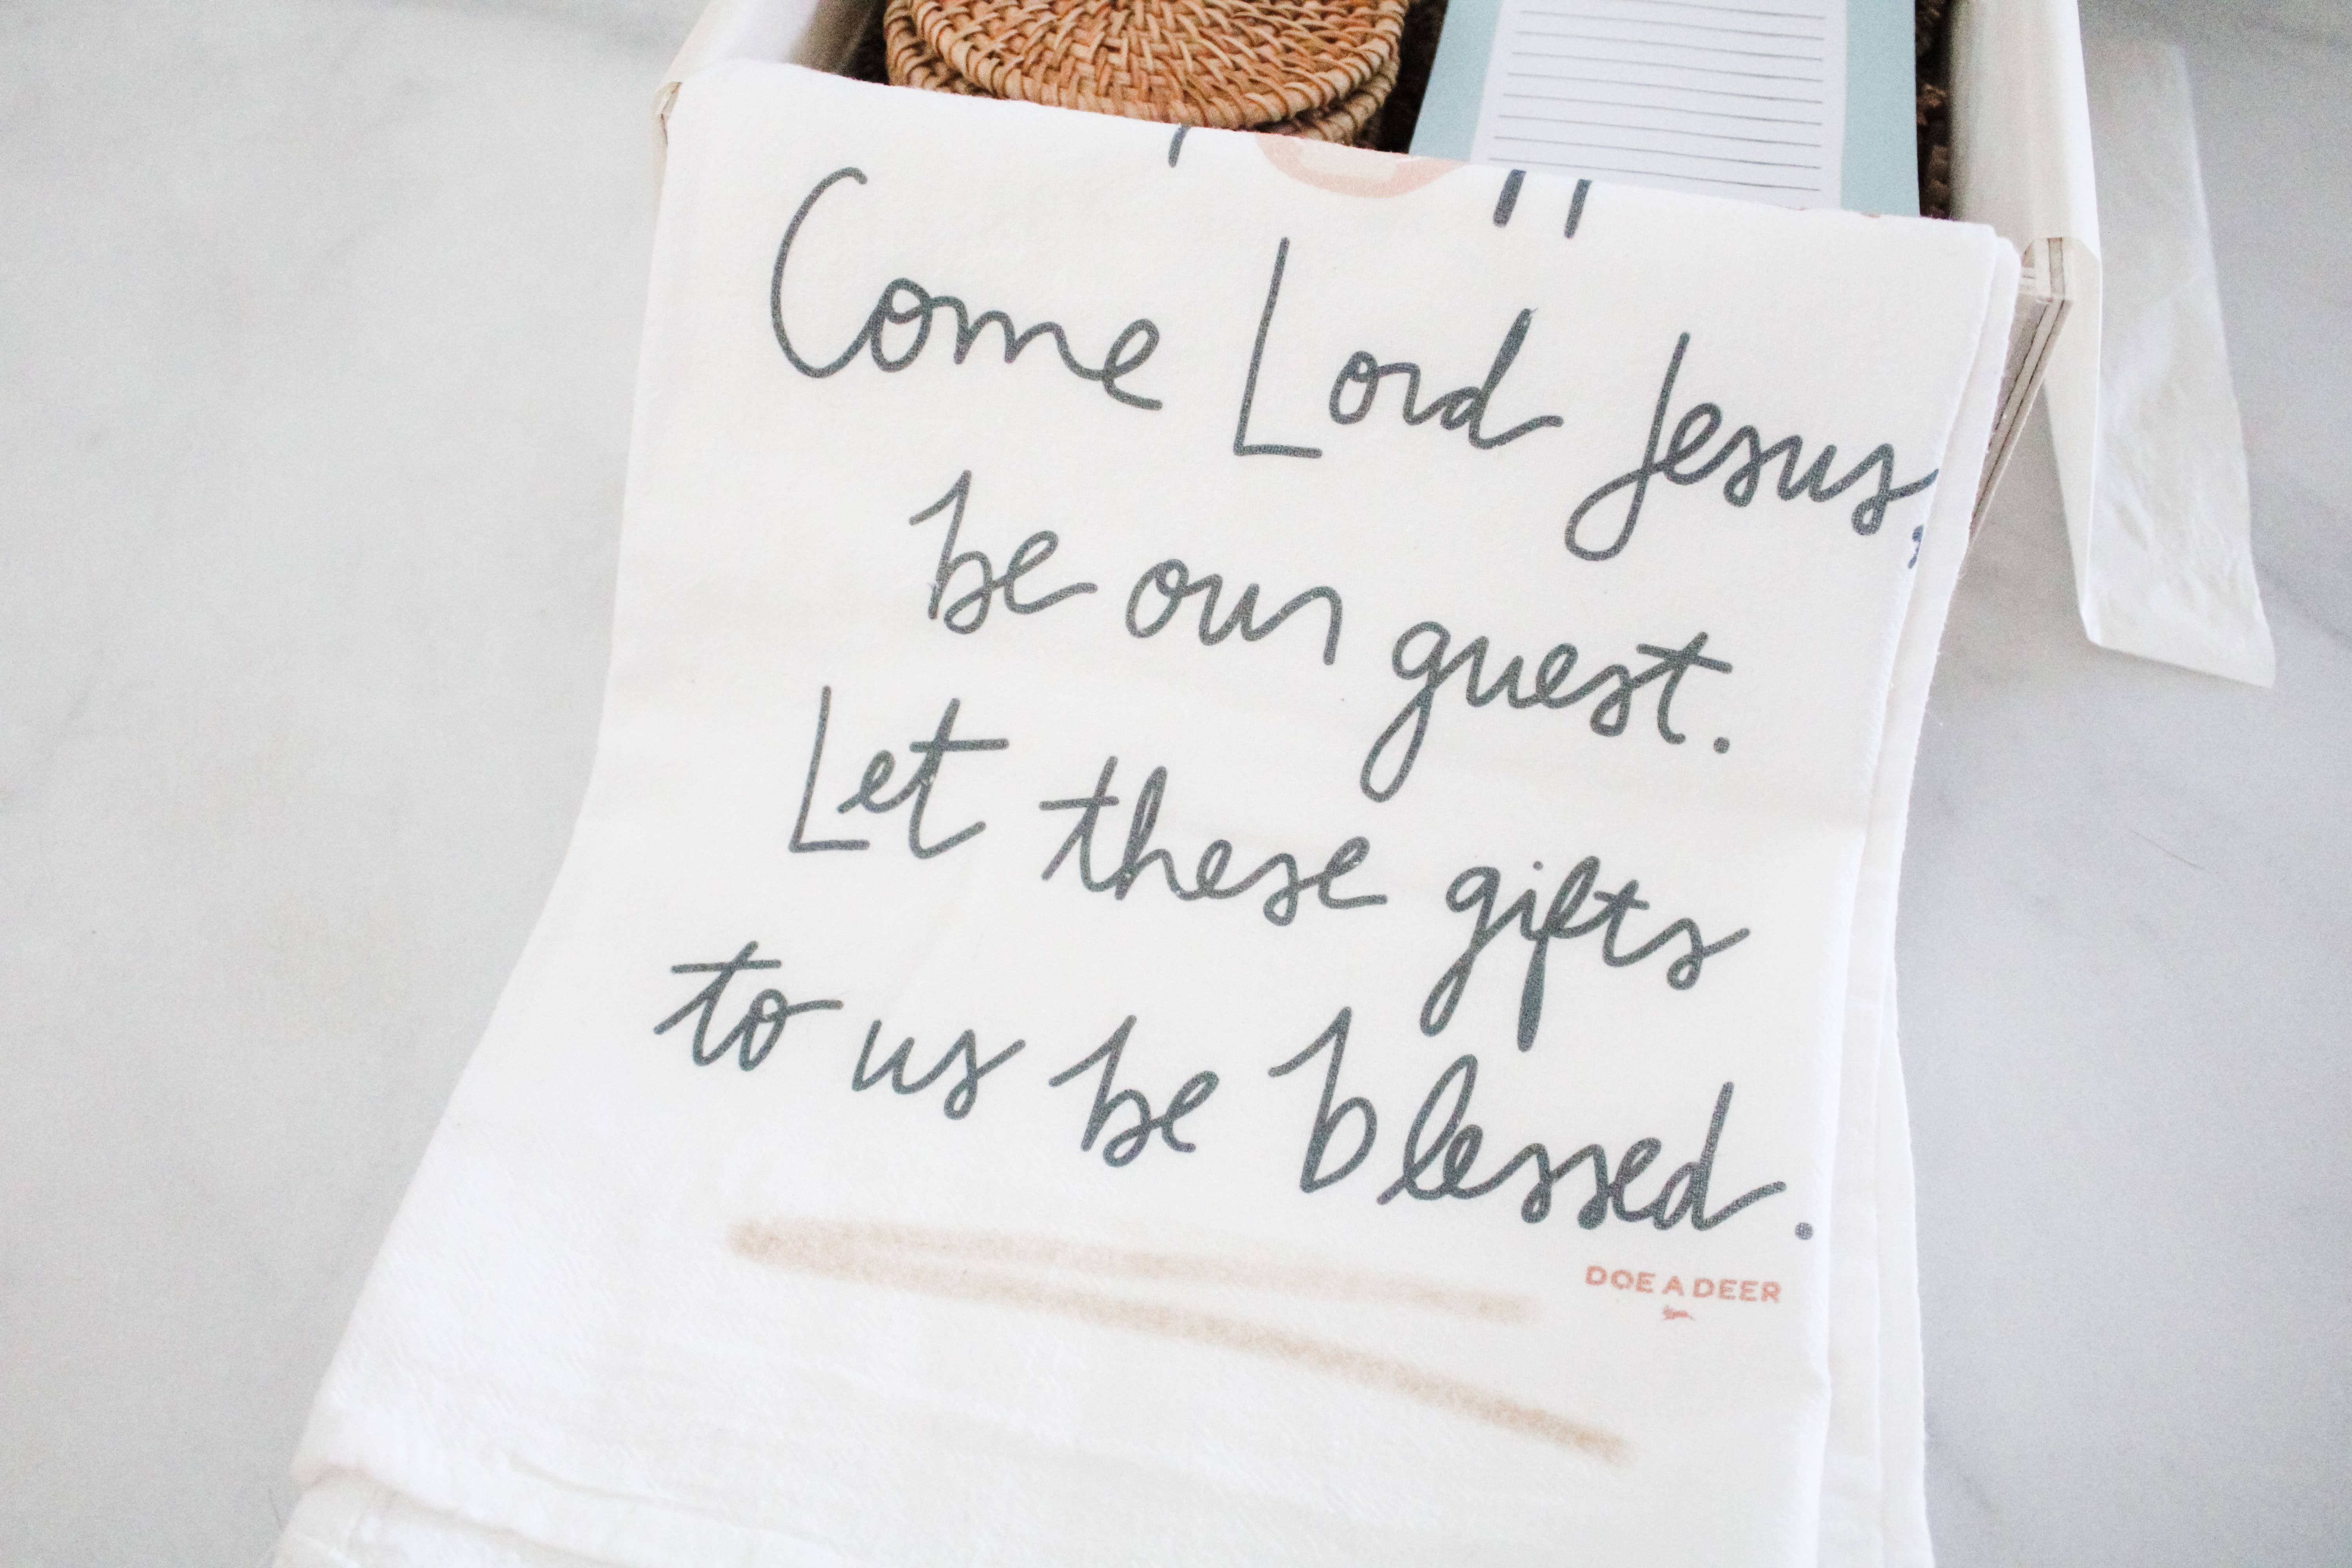 Come Lord Jesus,
be our guest.
Let these gifts
to us be blessed.
DOE A DEER